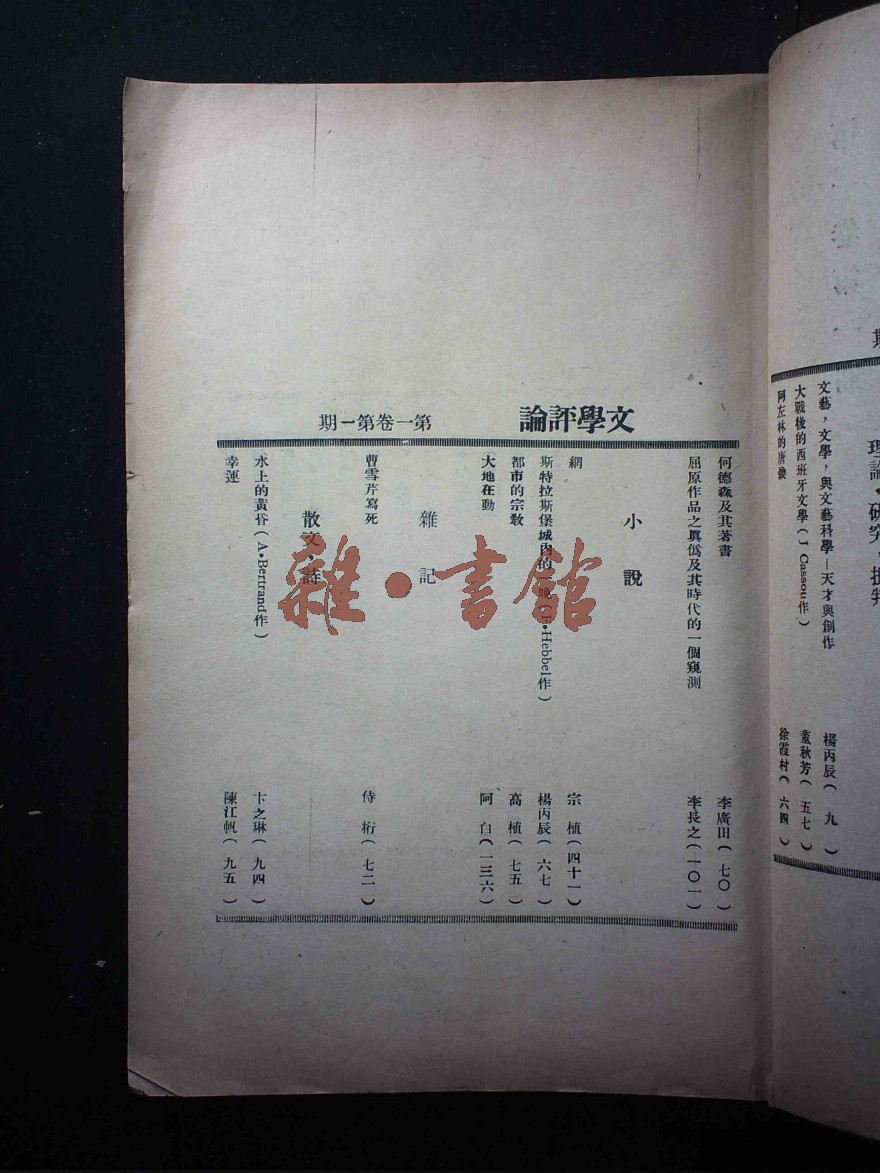 理論·研究·批判
文藝，文學，與文藝科學—天才與創作 楊丙辰（九）
大戰後的西班牙文學（J Cassou作） 董秋芳（五七）
阿左林的唐 徐霞村（六四）
文學評論 第一卷第一期
何德森及其著書 李廣田（七〇）
屈原作品之眞僞及其時代的一個窺測 李長之（一〇一）
小說
網 宗植（四十一）
斯特拉斯堡城內的一晚（F·Hebbel作） 楊丙辰（六七）
都市的宗教 高植（七五）
大地在動 阿白（一三六）
雜記
曹雪芹寫死 侍桁（七二）
散文·詩
水上的黃昏（A·Bertrand作） 卞之琳（九四）
幸運 陳江帆（九五）
雜·書館